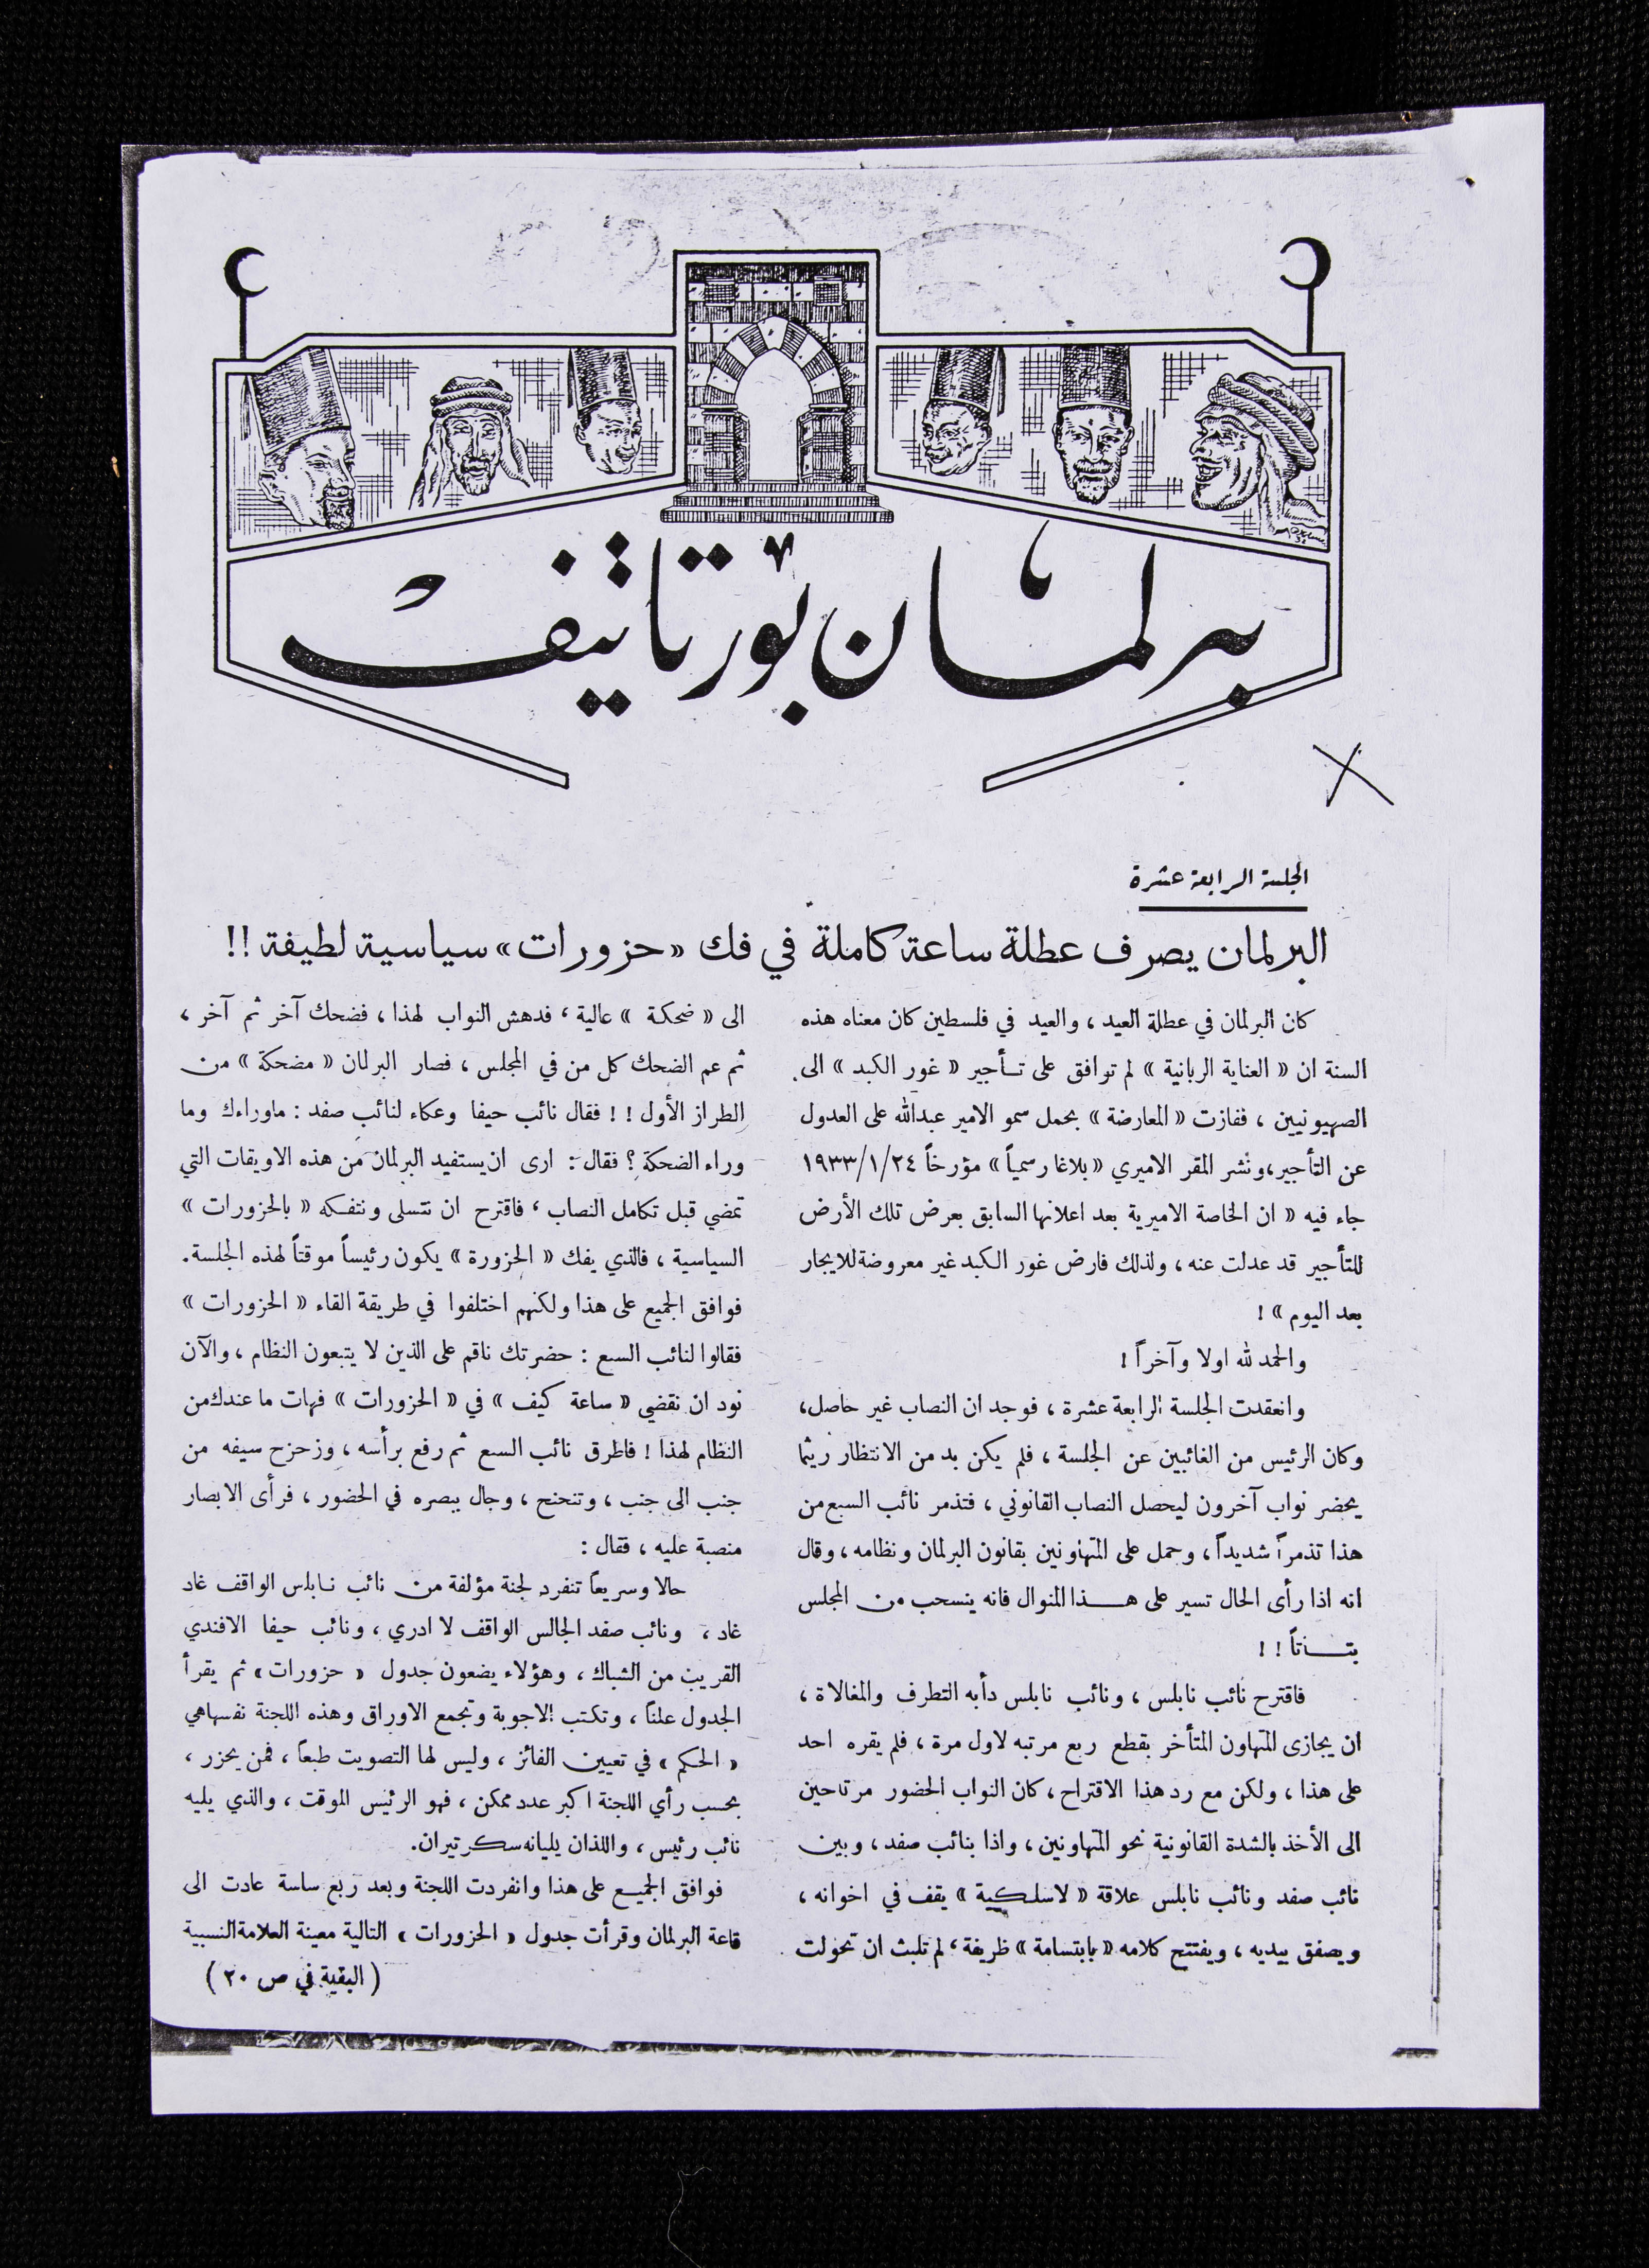 برلمان بورتاتيف
الجلسة الرابعة عشرة
البرلمان يصرف عطلة ساعة كاملة في فك «حزورات» سياسية لطيفة !!
كان البرلمان في عطلة العيد ، والعيد في فلسطين كان معناه هذه
السنة ان « العناية الربانية » لم توافق على تأجير « غور الكبد » الى
الصهيونيين ، ففازت « المعارضة » بحمل سمو الامير عبدالله على العدول
عن التأجير، ونشر المقر الاميري «بلاغا رسمياً» مؤرخاً ١٩٣٣/١/٢٤
جاء فيه « ان الخاصة الاميرية بعد اعلانها السابق بعرض تلك الأرض
للتأجير قد عدلت عنه ، ولذلك فارض غور الكبد غير معروضة للايجار
بعد اليوم » !
والحمد لله اولا وآخراً !
وانعقدت الجلسة الرابعة عشرة ، فوجد ان النصاب غير حاصل،
وكان الرئيس من الغائبين عن الجلسة ، فلم يكن بد من الانتظار ريثما
يحضر نواب آخرون ليحصل النصاب القانوني ، فتذمر نائب السبع من
هذا تذمراً شديداً ، وحمل على المتهاونين بقانون البرلمان ونظامه ، وقال
انه اذا رأى الحال تسير على هذا المنوال فانه ينسحب من المجلس
بتـاتاً ! !
فاقترح نائب نابلس ، ونائب نابلس دأبه التطرف والمغالاة ،
ان يجازى المتهاون المتأخر بقطع ربع مرتبه لاول مرة ، فلم يقره احد
على هذا ، ولكن مع رد هذا الاقتراح ، كان النواب الحضور مرتاحين
الى الأخذ بالشدة القانونية نحو المتهاونين ، واذا بنائب صفد ، وبين
نائب صفد ونائب نابلس علاقة « لاسلكية » يقف في اخوانه ،
ويصفق بيديه ، ويفتتح كلامه « بابتسامة » ظريفة ، لم تلبث ان تحولت
الى « ضحكة » عالية ، فدهش النواب لهذا ، فضحك آخر ثم آخر ،
ثم عم الضحك كل من في المجلس ، فصار البرلمان « مضحكة » من
الطراز الأول ! ! فقال نائب حيفا وعكاء لنائب صفد : ماوراءك وما
وراء الضحكة ؟ فقال : ارى ان يستفيد البرلمان من هذه الاويقات التي
تمضي قبل تكامل النصاب ، فاقترح ان نتسلى ونتفكه « بالحزورات »
السياسية ، فالذي يفك « الحزورة » يكون رئيساً موقتاً لهذه الجلسة.
فوافق الجميع على هذا ولكنهم اختلفوا في طريقة القاء « الحزورات »
فقالوا لنائب السبع : حضرتك ناقم على الذين لا يتبعون النظام ، والآن
نود ان نقضي « ساعة كيف » في « الحزورات » فهات ما عندك من
النظام لهذا ! فاطرق نائب السبع ثم رفع برأسه ، وزحزح سيفه من
جنب الى جنب ، وتنحنح ، وجال ببصره في الحضور ، فرأى الابصار
منصبة عليه ، فقال :
حالا وسريعاً تنفرد لجنة مؤلفة من نائب نابلس الواقف غاد
غاد ، ونائب صفد الجالس الواقف لا ادري ، ونائب حيفا الافندي
القريب من الشباك ، وهؤلاء يضعون جدول « حزورات » ثم يقرأ
الجدول علناً ، وتكتب الاجوبة وتجمع الاوراق وهذه اللجنة نفسهاهي
« الحكم » في تعيين الفائز ، وليس لها التصويت طبعاً ، فمن يحزر ،
بحسب رأي اللجنة اكبر عدد ممكن ، فهو الرئيس الموقت ، والذي يليه
نائب رئيس ، واللذان يليانه سكرتيران.
فوافق الجميع على هذا وانفردت اللجنة وبعد ربع ساسة عادت الى
قاعة البرلمان وقرأت جدول « الحزورات » التالية معينة العلامة النسبية
( البقية في ص ٢٠ )